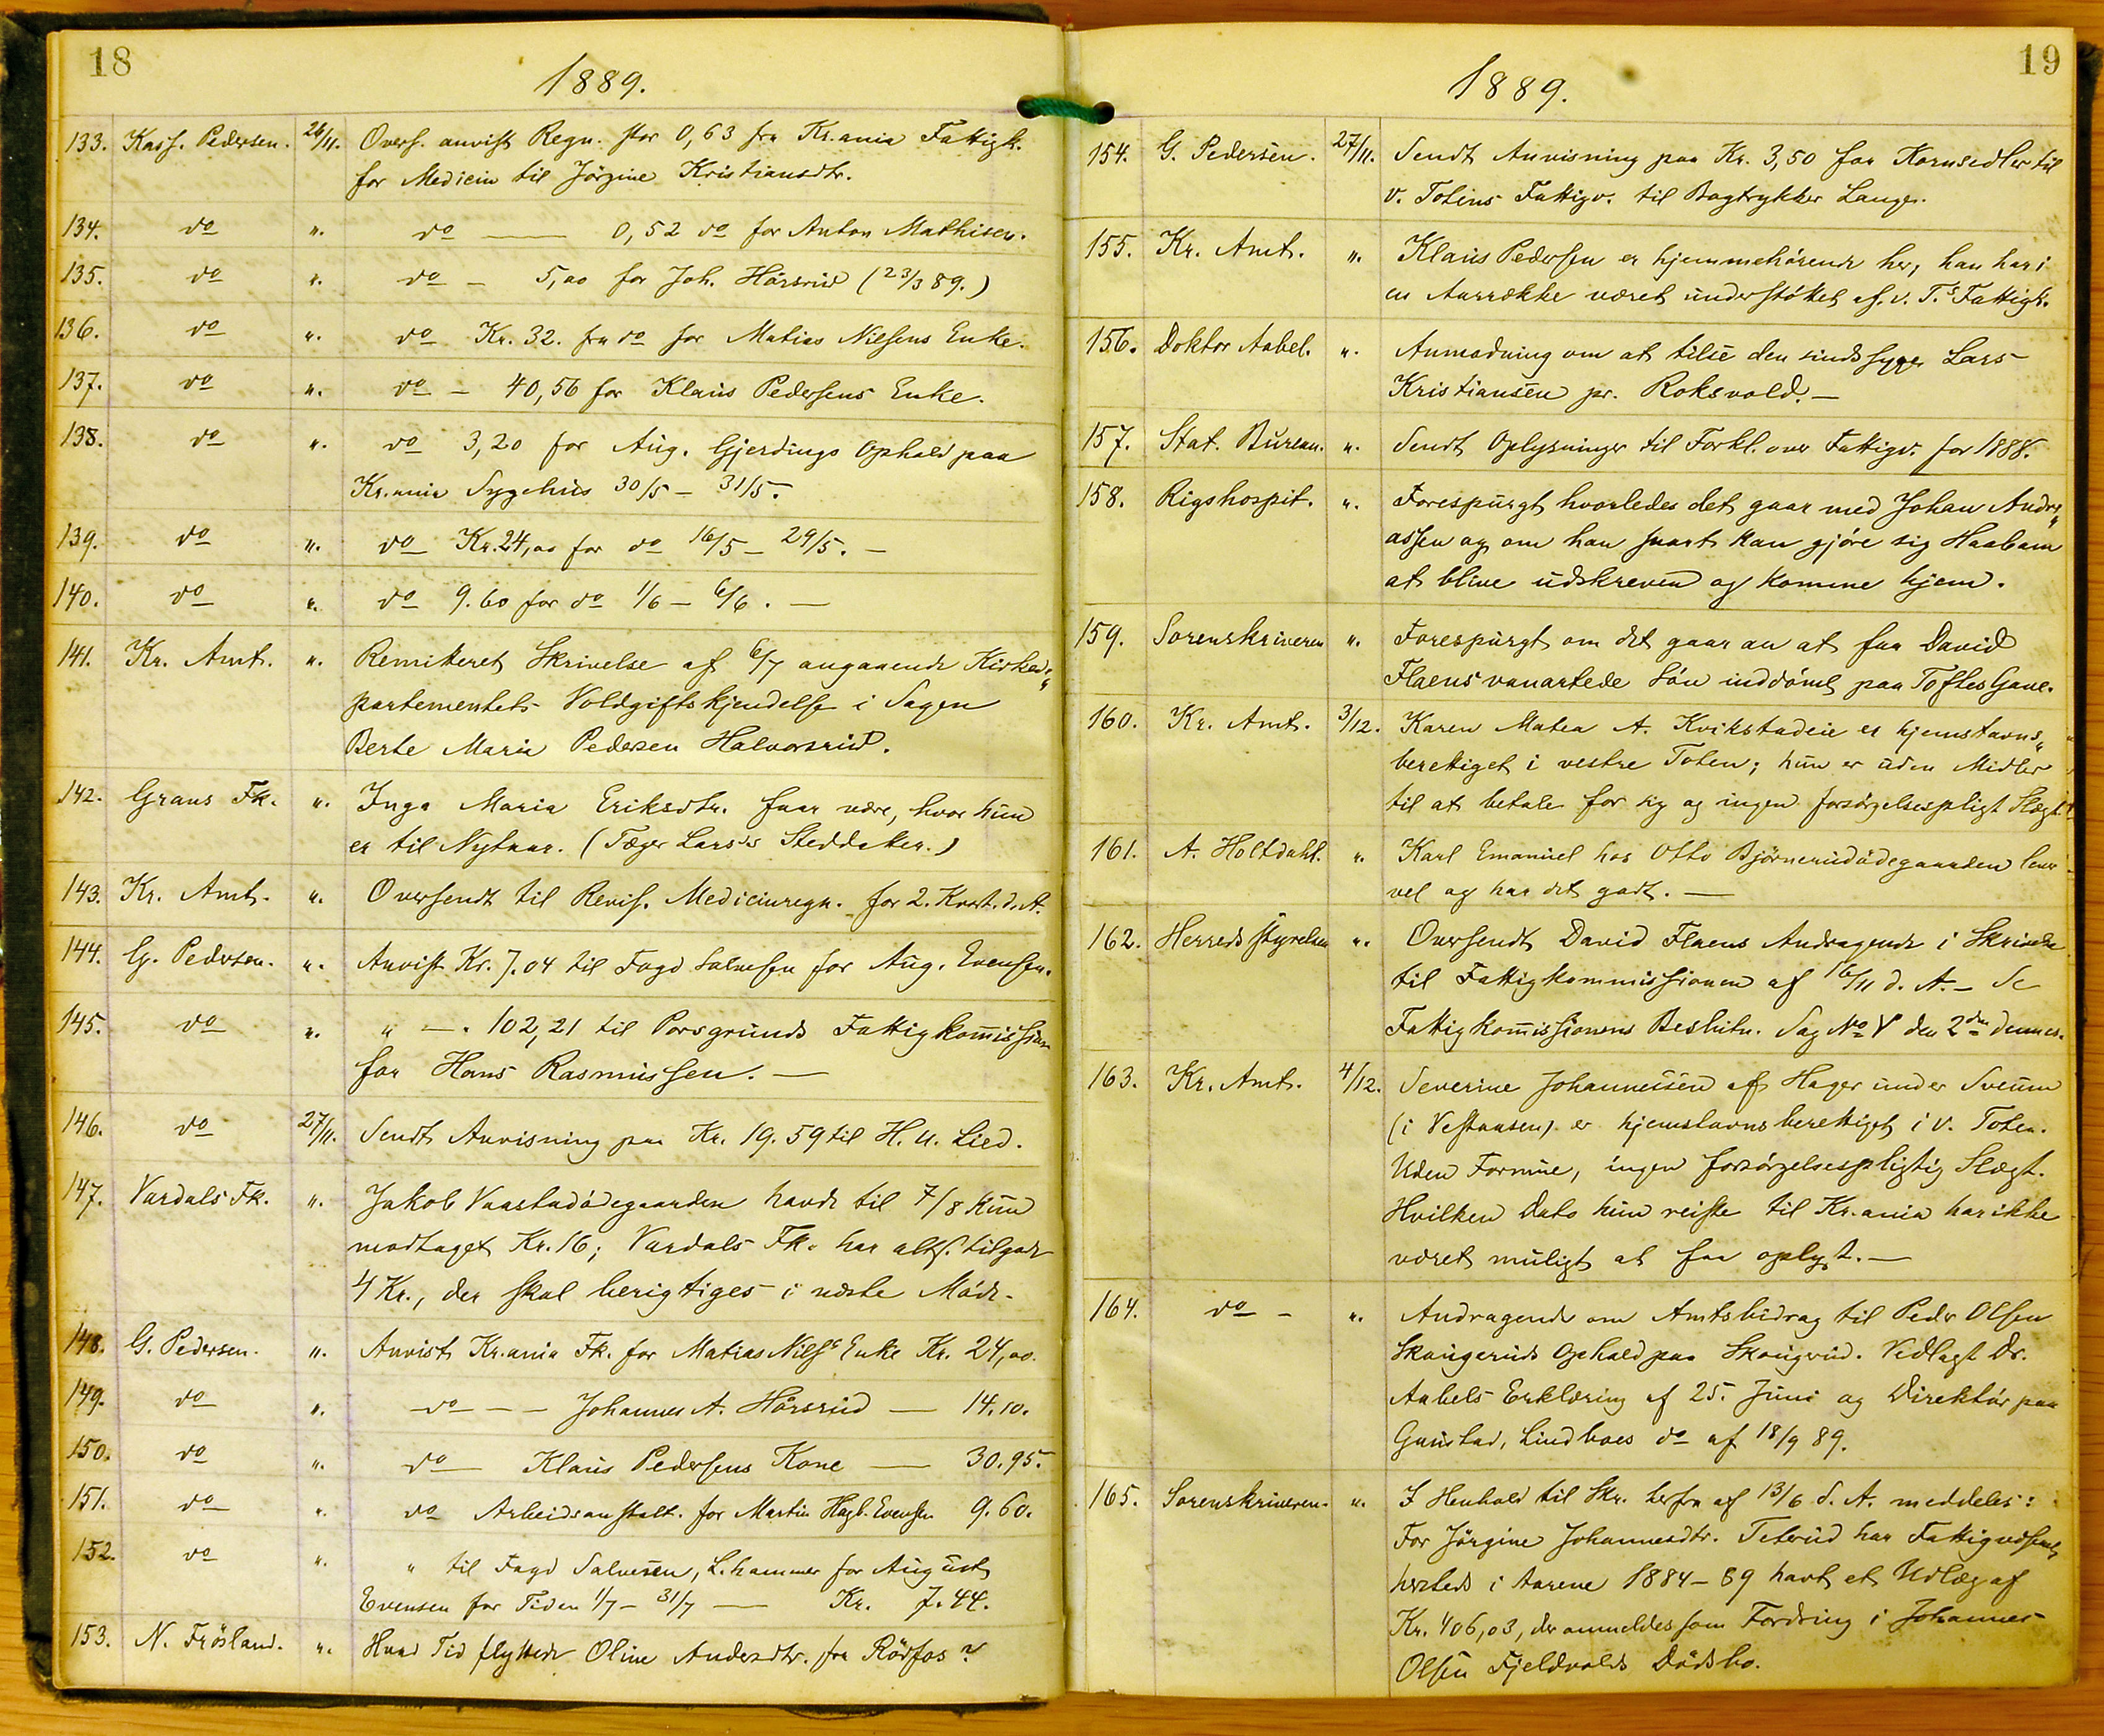 18
1889.
133. Kass. Pedersen. 26/11. Overs. anvist Regn. stor 0,63 fra Kr.ania Fattigk.
for Medicin til Jörgine Kristiansdtr.
134. do ". do — 0,52 do for Anton Mathisen.
135. do ". do – 5,00 for Joh. Hörsrud (23/3 89.)
136. do ". do Kr. 32. fra do for Matias Nilsens Enke.
137. do ". do – 40,56 for Klaus Pedersens Enke.
138. do ". do 3,20 for Aug. Gjerdings Ophold paa
Kr.ania Sygehus 30/5 – 31/5.
139. do ". do Kr. 24,00 for do 16/5 – 29/5. –
140. do ". do 9.60 for do 1/6 – 6/6. —
141. Kr. Amt. ". Remitteret Skrivelse af 6/7 angaaende Kirkede„
partementets Voldgiftskjendelse i Sagen
Berte Marie Pedersen Halvorsrud.
142. Grans Fk. ". Inga Maria Eriksdtr. faar være, hvor hun
er til Nytaar. (Tæger Lars's Steddaker.)
143. Kr. Amt. ". Oversendt til Revis. Medicinregn. for 2. Kvart. d. A.
144. G. Pedersen. ". Anvist Kr. 7.04 til Fogd Salvesen for Aug. Evensen.
145. do ". " —. 102,21 til Porsgrunds Fattigkommission
for Hans Rasmussen. —
146. do 27/11. Sendt Anvisning paa Kr. 19.59 til H. U. Lied.
147. Vardals Fk. ". Jakob Vaastadödegaarden havde til 7/8 kun
modtaget Kr. 16; Vardals Fk. har alts. tilgode
4 Kr., der skal berigtiges i næste Möde.
148. G. Pedersen. ". Anvist Kr.ania Fk. for Matias Nilss Enke Kr. 24,00.
149. do ". do – – Johannes A. Hörsrud — 14.10.
150. do ". do — Klaus Pedersens Kone — 30.95.
151. do ". do Arbeidsanstalt. for Martin Hagb. Evensen 9.60.
152. do ". " til Fogd Salvesen, L.hammer for August
Evensen for Tiden 1/7 – 31/7 — Kr. 7.44.
153. N. Frösland. ". Hvad Tid flyttede Oline Andersdtr. fra Rödfos?
19
1889.
154. G. Pedersen. 27/11. Sendt Anvisning paa Kr. 3,50 for Kornsedler til
V. Totens Fattigv. til Bogtrykker Lange.
155. Kr. Amt. ". Klaus Pedersen er hjemmehörende her, han har i
en Aarrække været understöttet af v. T.s Fattigk.
156. Doktor Aabel. ". Anmodning om at tilse den sindssyge Lars
Kristiansen pr. Roksvold. —
157. Stat. Bureau. ". Sendt Oplysninger til Forkl. over Fattigv. for 1888.
158. Rigshospit. ". Forespurgt hvorledes det gaar med Johan Andre„
assen og om han snart kan gjöre sig Haab om
at blive udskreven og komme hjem.
159. Sorenskriveren ". Forespurgt om det gaar an at faa David
Flaens vanartede Sön inddömt paa Toftes Gave.
160. Kr. Amt. 3/12. Karen Matea A. Kvikstadeie er hjemstavns„
berettiget i vestre Toten; hun er uden Midler
til at betale for sig og ingen forsörgelsespligt Slægt.
161. A. Holtdahl. ". Karl Emanuel hos Otto Björnerudödegaarden lever
vel og har det godt. —
162. Herredsstyrelsen ". Oversendt David Flaens Andragende i Skrivelse
til Fattigkommissionen af 16/11 d. A. – Se
Fattigkommissionens Beslutn. Sag No V den 2den dennes.
163. Kr. Amt. 4/12. Severine Johannessen af Hager under Sveum
(i Vestaasen) er hjemstavnsberettiget i V. Toten.
Uden Formue, ingen forsörgelsespligtig Slægt.
Hvilken Dato hun reiste til Kr.ania har ikke
været muligt at faa oplyst. —
164. do – ". Andragende om Amtsbidrag til Peder Olsen
Skougeruds Ophold paa Skougrud. Vedlagt Dr.
Aabels Erklæring af 25. Juni og Direktör paa
Gaustad, Lindboes do af 18/9 89.
165. Sorenskriveren. ". I Henhold til Skr. herfra af 13/6 d. A. meddeles:
For Jörgine Johannesdtr. Teterud har Fattigvæsenet
hersteds i Aarene 1884–89 havt et Udlæg af
Kr. 406,03, der anmeldes som Fordring i Johannes
Olsen Fjeldvolds Dödsbo.